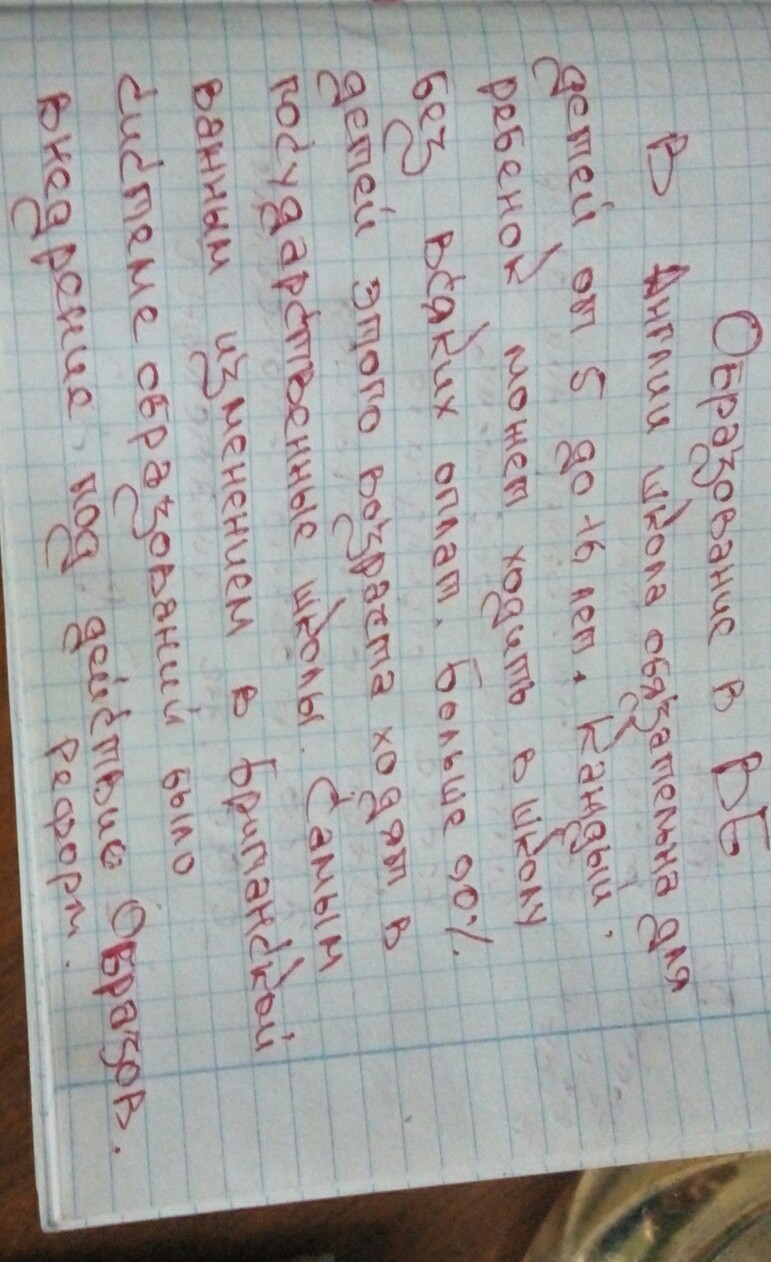 Образование в ВБ
В Англии школа обязательна для
детей от 5 до 16 лет. Каждый
ребенок может ходить в школу
без всяких оплат. Больше 90%
детей этого возраста ходят в
государственные школы. Самым
ванным изменением в Британской
системе образований было
внедрение под действие Образов.
реформ.